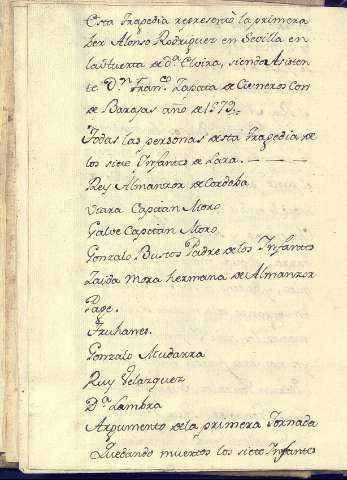 Esta tragedia representò la primera
bez Alonso Rodriguez en Sevilla en
la Huerta de d.ª Elvira, siendo Asisten-
te D.n Fran.co Zapata de Cisneros Con
de Barajas año de 1579,,
Todas las personas desta Tragedia de
los siete Infantes de Lara. — — —
Rey Almanzor de Cordoba
Viara Capitan Moro
Galve Capitan Moro
Gonzalo Bustos Padre de los Infantes
Zaida Mora hermana de Almanzor
Page.
Truhanes.
Gonzalo Mudarra
Ruy Velazquez
D.ª Lambra
Argumento de la primera Jornada
Quedando muertos los siete Infantes